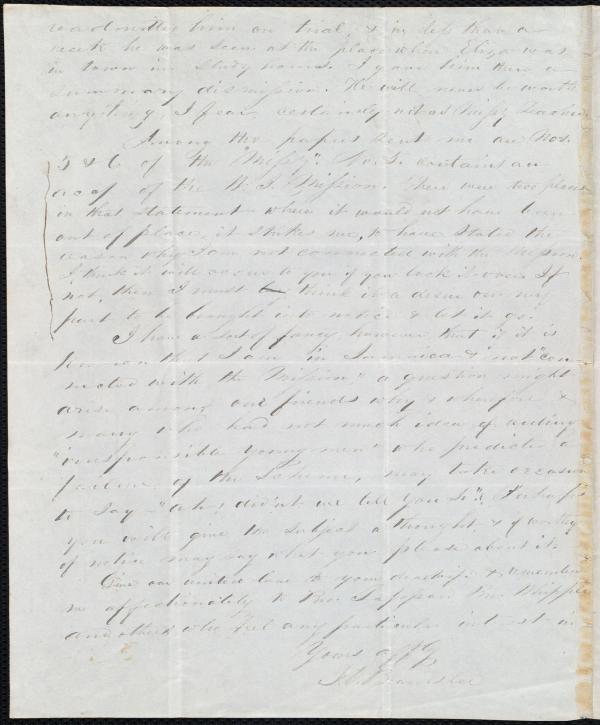 readmitted him on trial, & in less than a
week he was seen at the place where Eliza was
in town in study hours. I gave him then a
summary dismission. He will never be worth
anything, I fear, certainly not as Missy teacher.
Among the papers sent me are Nos.
5 & 6 of the "Missy". No. 5. contains an
acct of the W. I. Mission. There were two places
in that statement where it would not have been
out of place, it strikes me, to have stated the
reason why I am not connected with the Mission.
I think it will occur to you if you look it over. If
not, then I must think it a desire on my
part to be brought into notice & let it go.
I have a sort of fancy however that if it is
known that I am in Jamaica & "not con-
nected with the Mission", a question might
arise among our friends why & wherefore &
many who had not much idea of aiding
"irresponsible young men" who predicted a
failure of the Scheme, may take occasion
to say - "Ah, didn't we tell you so"? Perhaps
you will give the subject a thought & if worthy
of notice may say what you please about it.
Give our united love to your dear & remember
me affectionately to Bro Tappan Bro Whipple
and others who feel any particular interest in
Yours affy